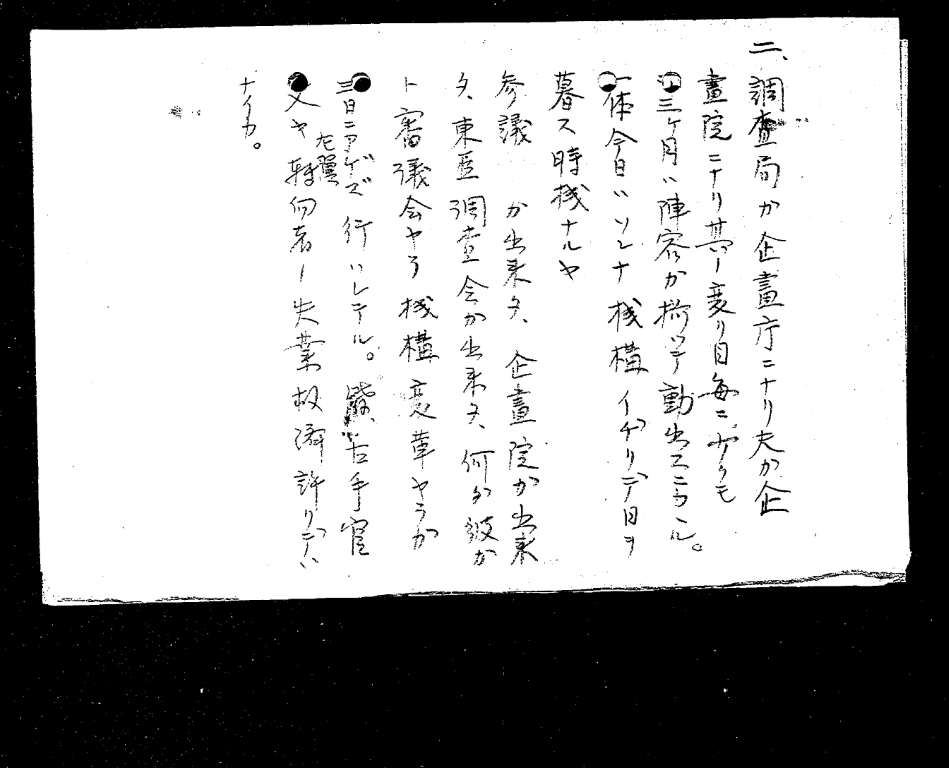 二、調査局カ企畫庁ニナリ夫カ企
畫院ニナリ其ノ変リ目毎ニ少クモ
三ケ月ハ陣容カ揃ッテ動出スニカヽル。
一体今日ハソンナ機構イヂリデ日ヲ
暮ス時機ナルヤ
参議 カ出来タ、企畫院カ出来
タ、東亜調査会カ出来タ、何カ彼カ
ト審議会ヤラ機構変革ヤラカ
三日ニアゲズ行ハレテル。皆古手官
左翼
又ヤ轉向者ノ失業救済許リデハ
ナイカ。